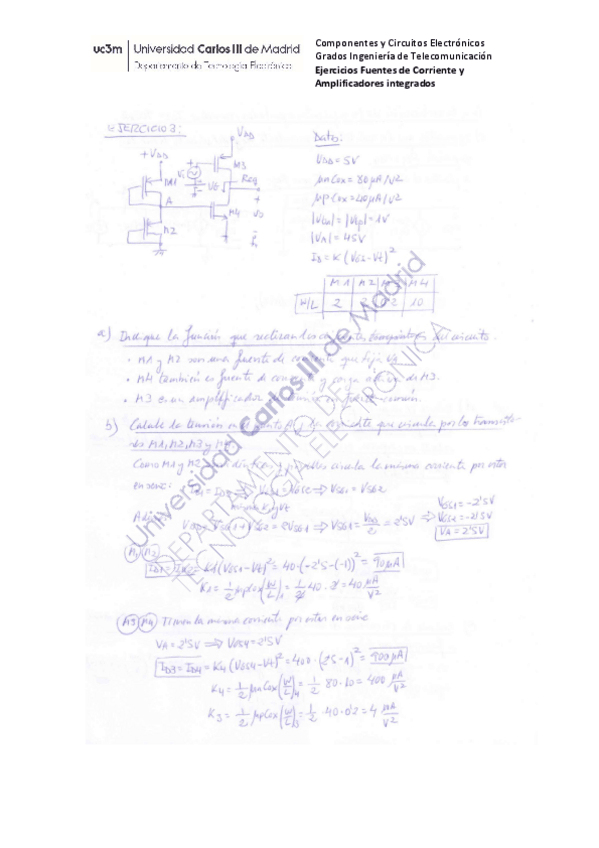 uc3m Universidad Carlos III de Madrid
Departamento de Tecnología Electrónica
Componentes y Circuitos Electrónicos
Grados Ingeniería de Telecomunicación
Ejercicios Fuentes de Corriente y
Amplificadores integrados
EJERCICIO 3:
VDD
+VDD
M1
M3
Vi
VG
Req
A
M4
+
vo
-
M2
Datos:
VDD = 5V
μnCox = 80 μA/V2
μpCox = 40 μA/V2
|Vtn| = |Vtp| = 1V
|VA| = 45V
ID = K (VGS - Vt)^2
M1 M2 M4
W/L 2 10
a) Indique la función que realizan los del circuito.
• M1 y M2 son una fuente de corriente que fija VA
• M4 también es fuente de corriente y carga activa de M3.
• M3 es un amplificador común.
b) Calcule la tensión en el punto A y la corriente que circula por los transisto-
res M1, M2, M3 y M4
Como M1 y M2 circula la misma corriente por estar
en serie: ⇒ VSG1 = VSG2
= 2VSG1 ⇒ VSG1 = VDD/2 = 2'5V ⇒
VGS1 = -2'5V
VGS2 = -2'5V
VA = 2'5V
M1 M2
ID1 = ID2 = K1 (VGS1 - Vt)^2 = 40 · (-2'5 - (-1))^2 = 90 μA
K1 = 1/2 μpCox (W/L)1 = 1/2 40 · 2 = 40 μA/V2
M3 M4 Tienen la misma corriente por estar en serie
VA = 2'5V ⇒ VGS4 = 2'5V
ID3 = ID4 = K4 (VGS4 - Vt)^2 = 400 · (2'5 - 1)^2 = 900 μA
K4 = 1/2 μnCox (W/L)4 = 1/2 80 · 10 = 400 μA/V2
K3 = 1/2 μpCox (W/L)3 = 1/2 · 40 · 0'2 = 4 μA/V2
Universidad Carlos III de Madrid
DEPARTAMENTO DE
TECNOLOGÍA ELECTRÓNICA